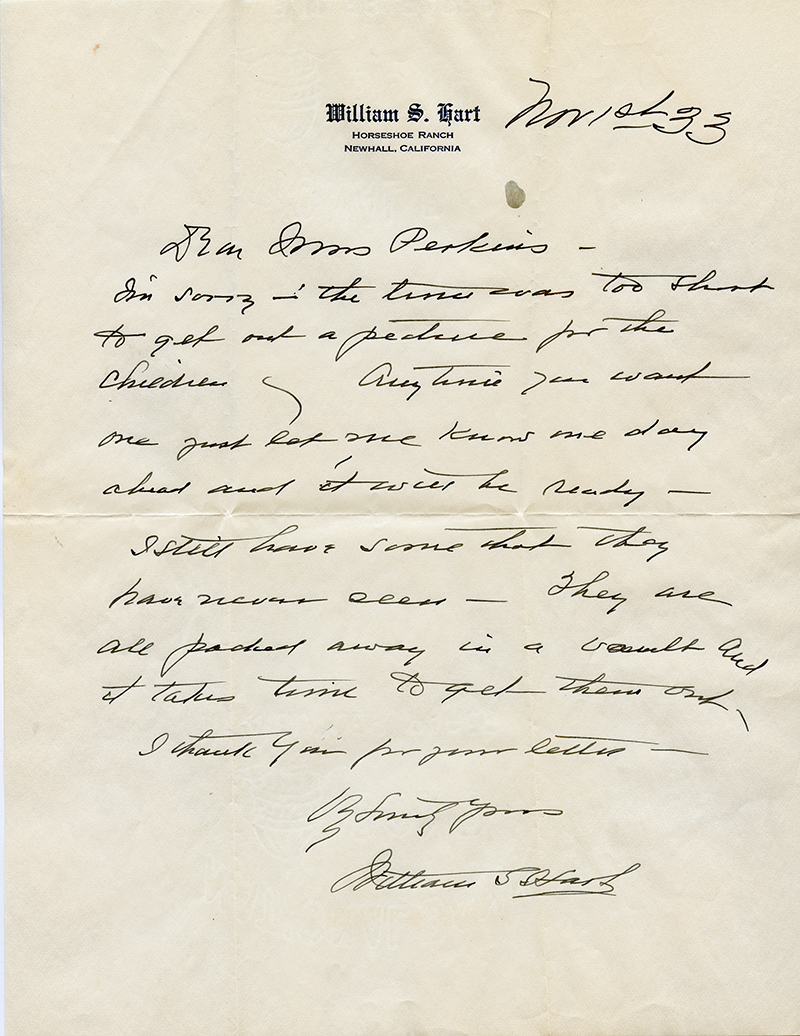 William S. Hart
HORSESHOE RANCH
NEWHALL, CALIFORNIA
Nov 1st 33
Dear Mrs Perkins –
I'm sorry – the time was too short
to get out a picture for the
children Anytime you want
one just let me know one day
ahead and it will be ready –
I still have some that they
have never seen – They are
all packed away in a vault and
it takes time to get them out,
I thank you for your letter –
Yours
William S Hart